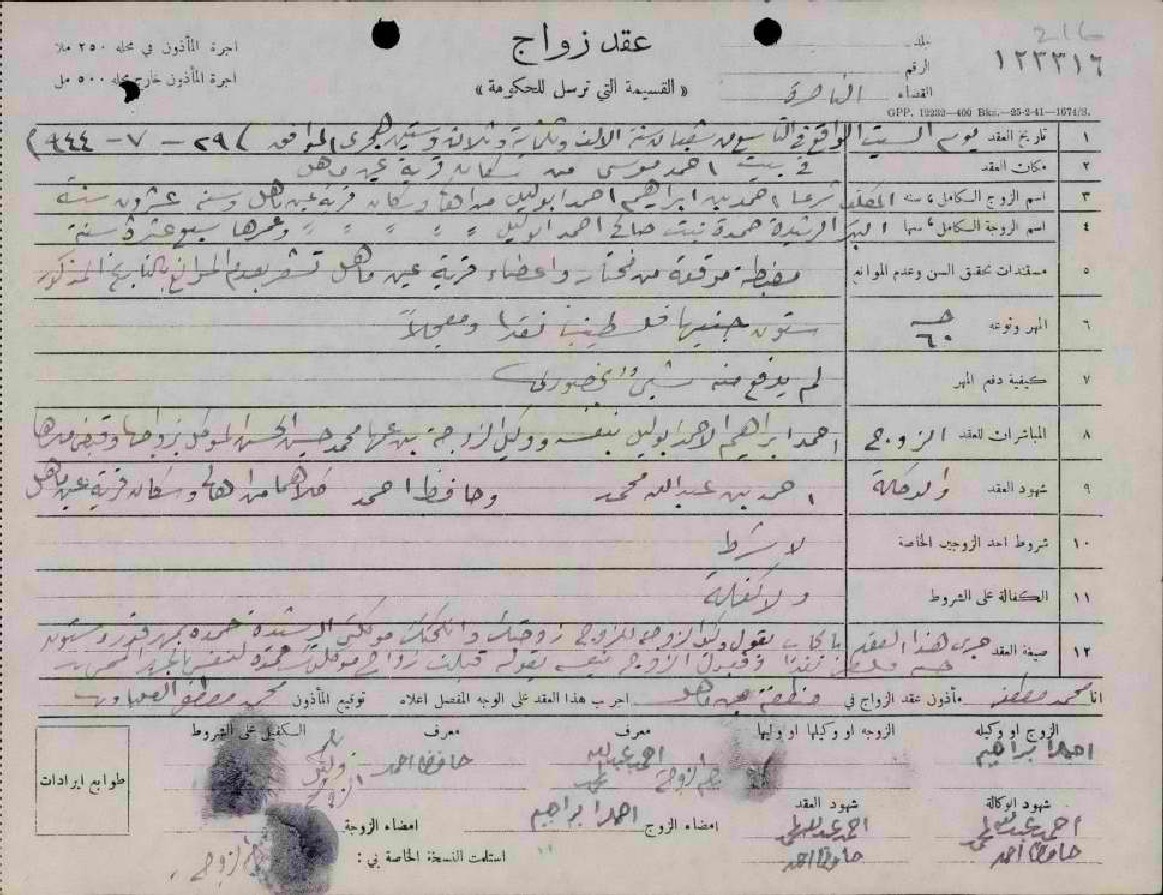 216
١٢٣٣١٦
عقد زواج
« القسيمة التي ترسل للحكومة »
اجرة المأذون في محله ٢٥٠ ملا
اجرة المأذون خارج محله ٥٠٠ مل
جلد
رقم
القضاء الناصرة
GPP. 19232—400 Bks.—25-2-41—1674/S.
١ تاريخ العقد يوم السبت الواقع في التاسع من شعبان سنة الالف وثلثماية وثلاث وستين هجري الموافق (٢٩ - ٧ - ٩٤٤)
٢ مكان العقد في بيت احمد موسى من سكان قرية عين ماهل
٣ اسم الزوج الكامل، سنه المكلف شرعا احمد بن ابراهيم احمد ابوليل من اهالي وسكان قرية عين ماهل وسنه عشرون سنة
٤ اسم الزوجة الكامل، سنها البكر الرشيدة حمدة بنت صالح احمد ابوليل 〃 〃 〃 〃 〃 وعمرها سبع عشرة سنة
٥ مستندات تحقق السن وعدم الموانع مضبطة موقعة من مختار واعضاء قرية عين ماهل تشعر بعدم الموانع بالتاريخ المذكور
٦ المهر ونوعه ٦٠ ستون جنيها فلسطينيا نقدا ومعجلاً
٧ كيفية دفع المهر لم يدفع منه شيئ بحضوري
٨ المباشرات للعقد الزوج احمد ابراهيم الاحمد ابوليل بنفسه ووكيل الزوجة بن عمها محمد حسين الحسن الموكل بزواجها وقبض مهرها
٩ شهود العقد والوكالة احمد بن عبدالله محمد وحافظ احمد كلاهما من اهالي وسكان قرية عين ماهل
١٠ شروط احد الزوجين الخاصة لا شرط
١١ الكفالة على الشروط ولا كفالة
١٢ صيغة العقد جرى هذا العقد بايجاب بقول وكيل الزوجة للزوج زوجتك وانكحتك موكلتي الرشيدة حمده بمهر قدره ستون
وقبول الزوج بنفسه بقوله قبلت زواج موكلتك حمدة لنفسي
انا محمد مصطفى مأذون عقد الزواج في منطقة عين ماهل اجريت هذا العقد على الوجه المفصل اعلاه توقيع المأذون محمد مصطفى
الزوج او وكيله الزوجه او وكيلها او وليها معرف معرف الكفيل على الشروط
احمد ابراهيم احمد عبدالله حافظ احمد
طوابع ايرادات
شهود الوكالة شهود العقد
احمد عبدالله احمد عبدالله امضاء الزوج احمد ابراهيم امضاء الزوجة
حافظ احمد حافظ احمد استلمت النسخة الخاصة بي :